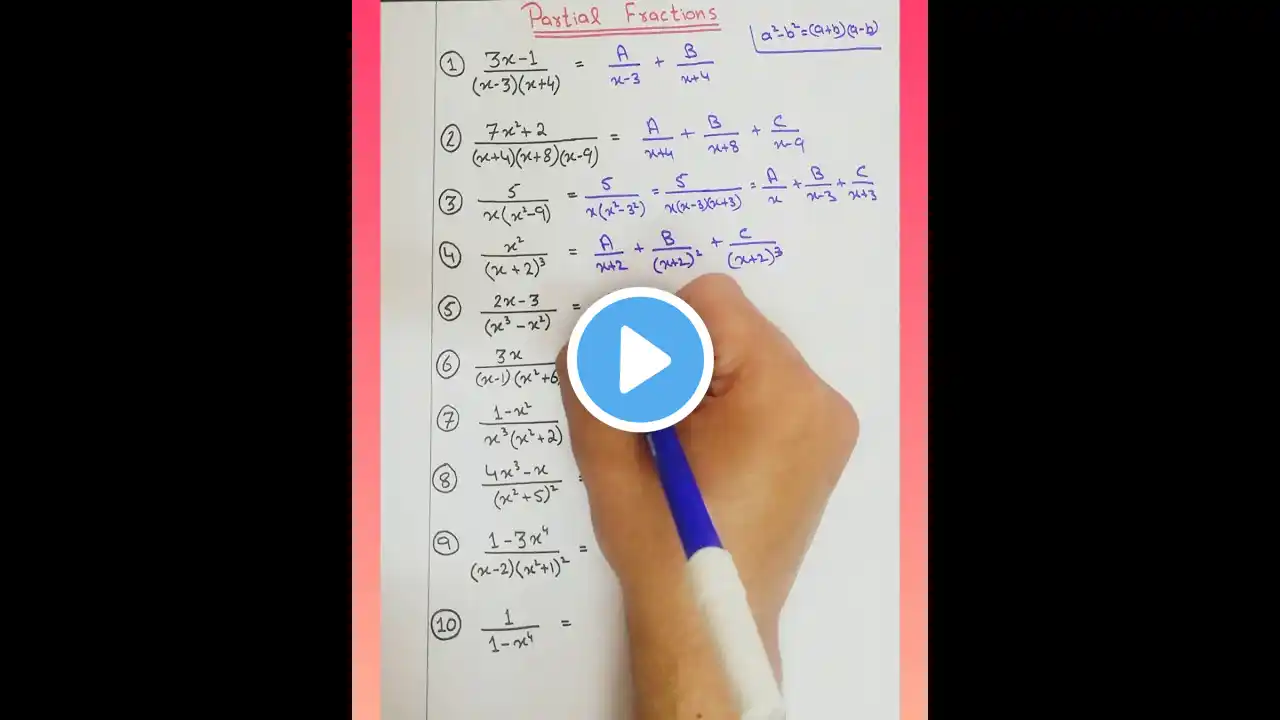 Partial Fractions
a²-b²=(a+b)(a-b)
① 3x-1/(x-3)(x+4) = A/x-3 + B/x+4
② 7x²+2/(x+4)(x+8)(x-9) = A/x+4 + B/x+8 + C/x-9
③ 5/x(x²-9) = 5/x(x²-3²) = 5/x(x-3)(x+3) = A/x + B/x-3 + C/x+3
④ x²/(x+2)³ = A/x+2 + B/(x+2)² + C/(x+2)³
⑤ 2x-3/(x³-x²) =
⑥ 3x/(x-1)(x²+6
⑦ 1-x²/x³(x²+2)
⑧ 4x³-x/(x²+5)² =
⑨ 1-3x⁴/(x-2)(x²+1)² =
⑩ 1/1-x⁴ =